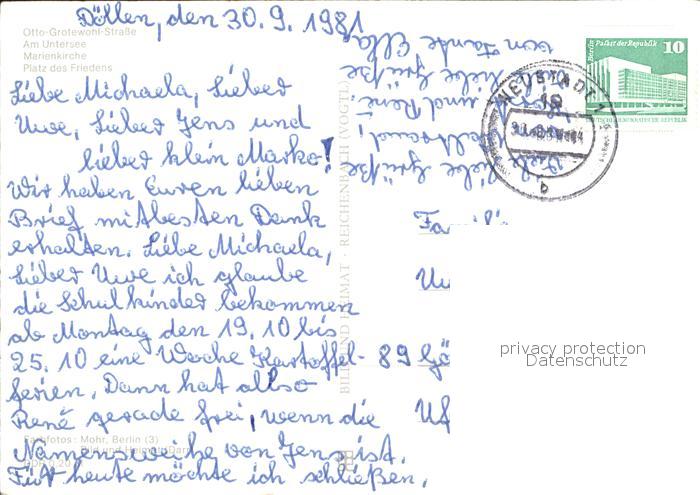 Otto-Grotewohl-Straße
Am Untersee
Marienkirche
Platz des Friedens
Döllen, den 30.9.1981
Liebe Michaela, Lieber
Uwe, Lieber Jens und
lieber klein Marko!
Wir haben Euren lieben
Brief mitbesten Dank
erhalten. Liebe Michaela,
Lieber Uwe ich glaube
die Schulkinder bekommen
ab Montag den 19.10 bis
25.10 eine Woche Kartoffel-
ferien. Dann hat allso
René gerade frei, wenn die
Namensweihe von Jens ist.
Für heute möchte ich schließen.
Viele Grüße
Liebe Grüße
und René.
Liebe Grüße
von Tante Ella
Farbfotos: Mohr, Berlin (3)
BILD UND HEIMAT · REICHENBACH (VOGTL)
Berlin Palast der Republik
10
DEUTSCHE DEMOKRATISCHE REPUBLIK
NEUSTADT 1
b
Fa
Un
89 Gö
Uf
privacy protection
Datenschutz